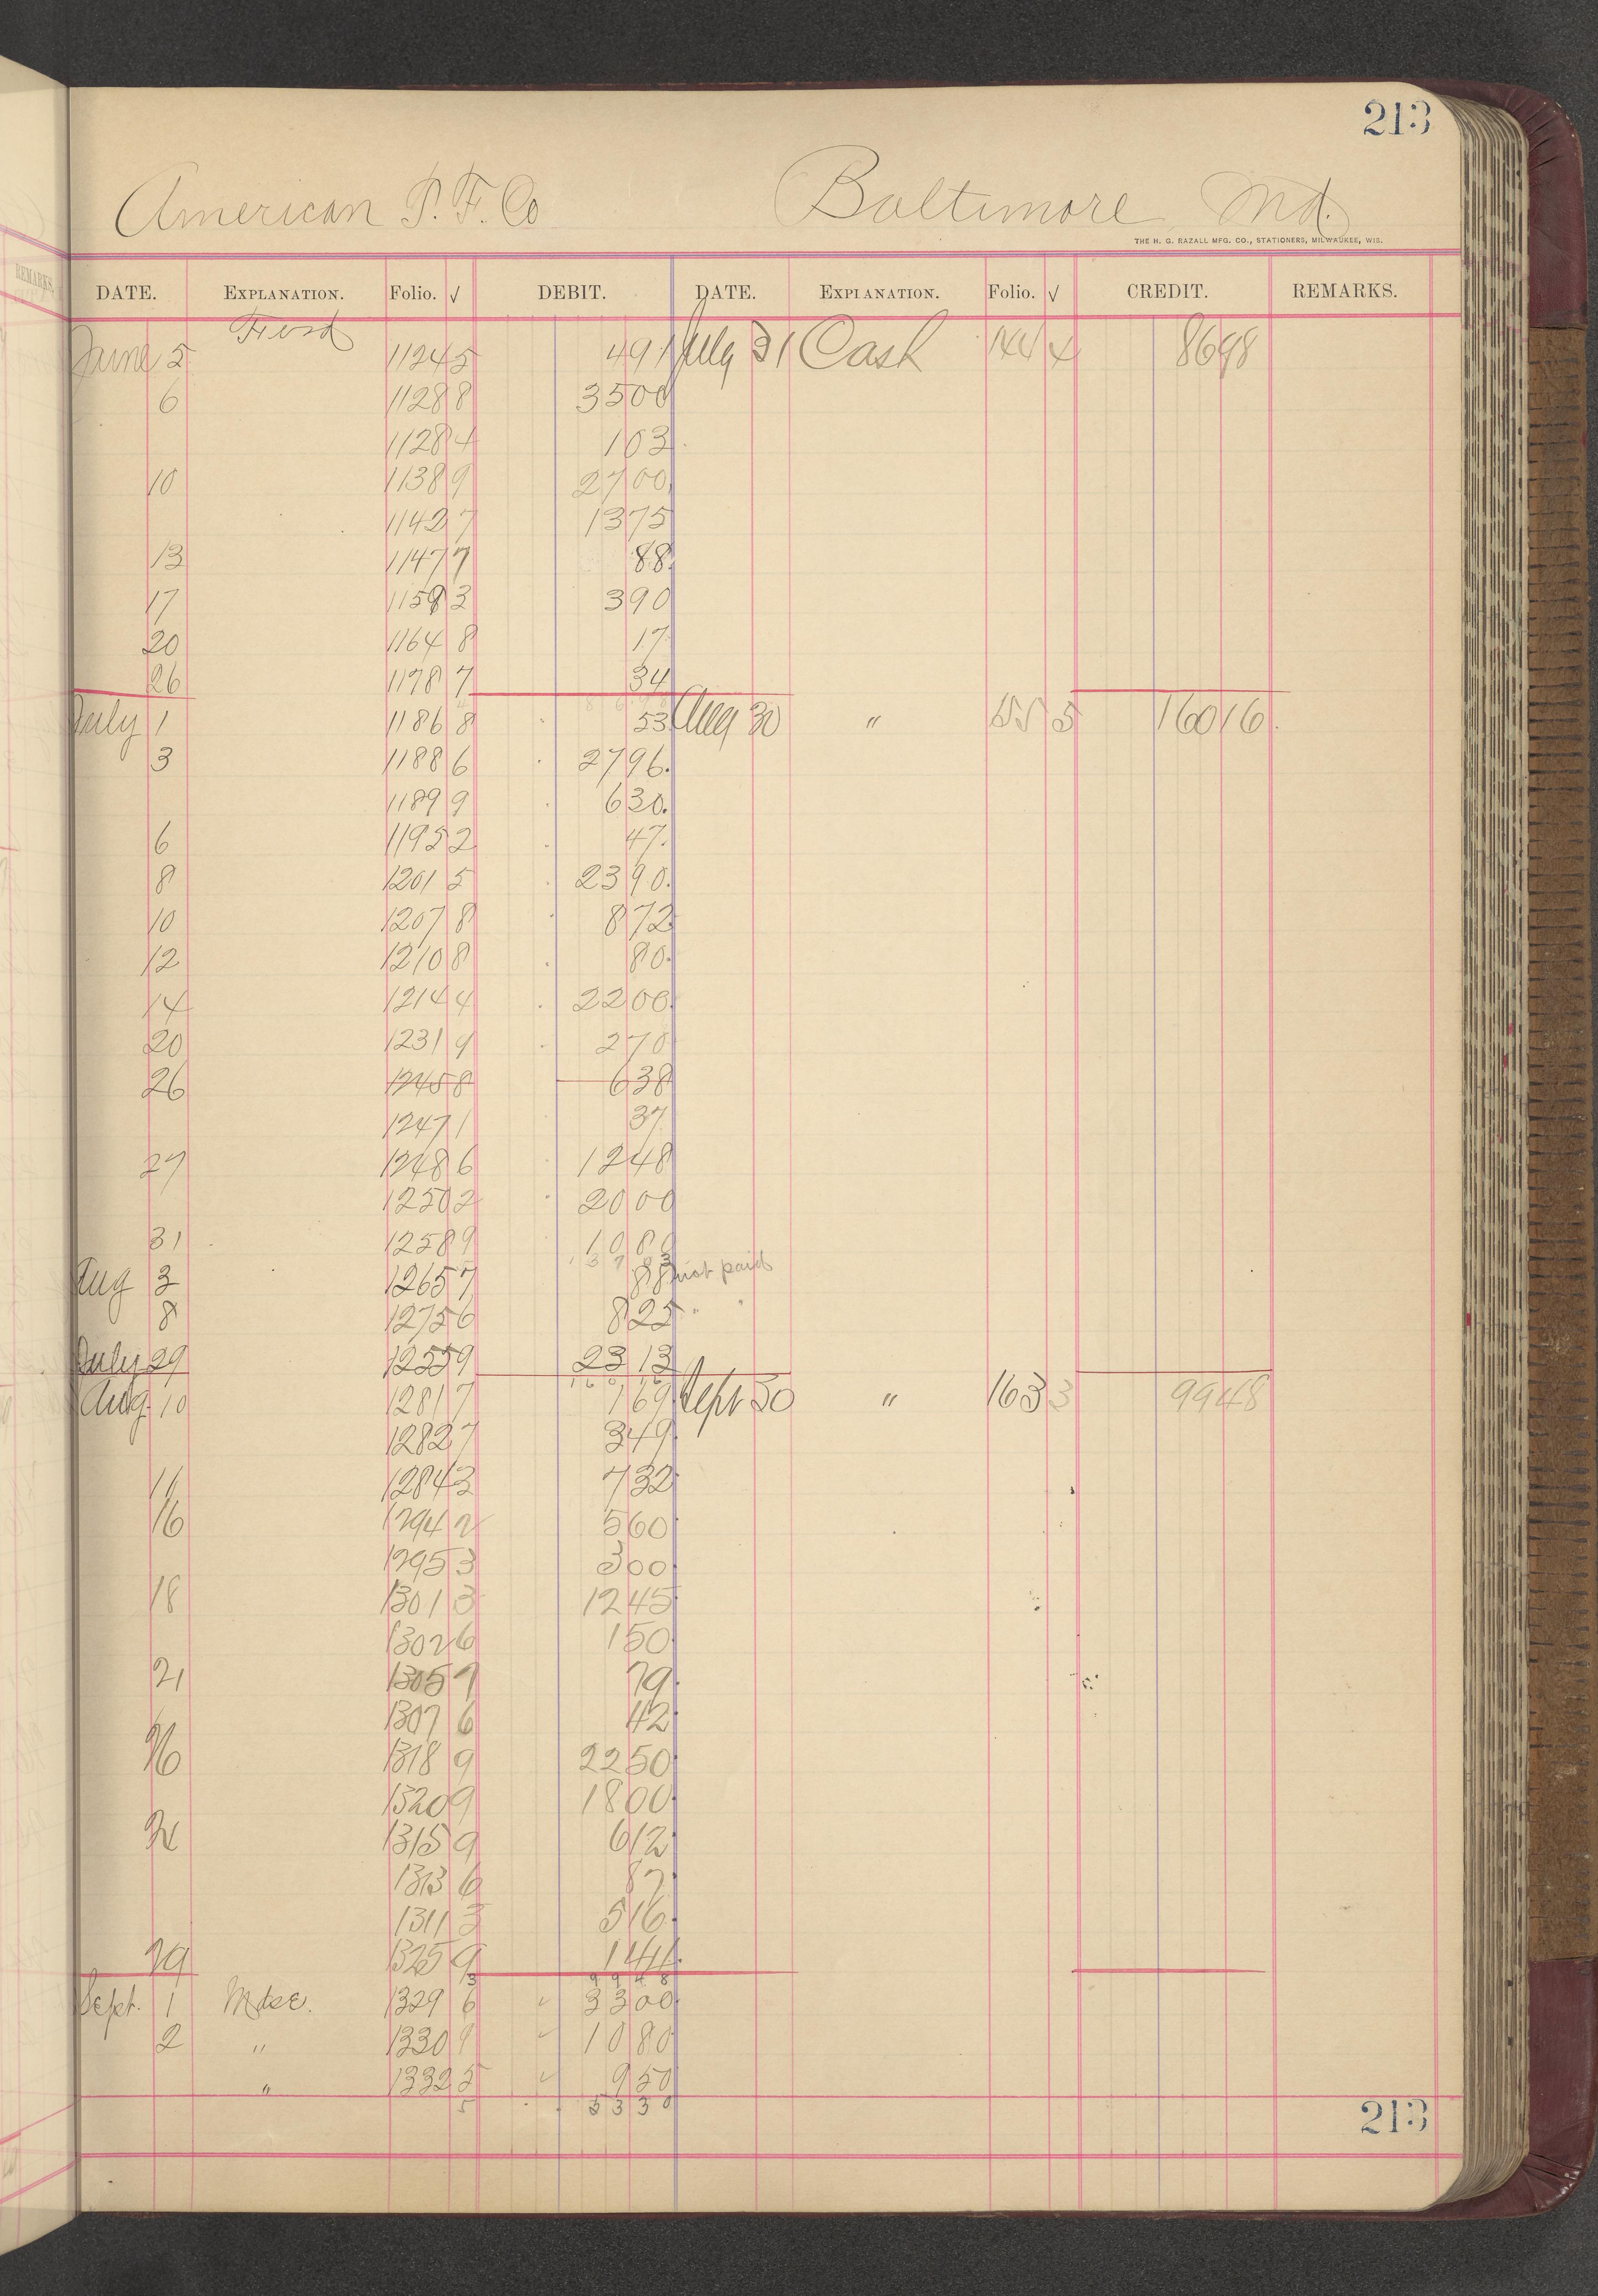 213
American P. F. Co Baltimore, Md.
THE H. G. RAZALL MFG. CO., STATIONERS, MILWAUKEE, WIS.
DATE. EXPLANATION. Folio. √ DEBIT. DATE. EXPLANATION. Folio. √ CREDIT. REMARKS.
June 5 11245 491 July 31 Cash 1444 8698
6 11288 3500
11284 103
10 11389 2700
11427 1375
13 11477 88
17 11593 390
20 11648 17
26 11787 34
8698
July 1 11868 53 Aug 30 " 1555 16016
3 11886 2796
11899 630
6 11952 47
8 12015 2390
10 12078 872
12 12108 80
14 12144 2200
20 12319 270
26 12458 638
12471 37
27 12486 1248
12502 2000
31 12589 1080
Aug 3 12657 88 not paid
8 12756 825 " "
July 29 12559 2313
16016
Aug. 10 12817 169 Sept 30 " 1633 9948
12827 349
11 12843 732
16 12942 560
12953 300
18 13013 1245
13026 150
21 13057 79
13076 42
26 13189 2250
13209 1800
24 13159 612
13136 87
13113 516
29 13259 1441
9948
Sept. 1 Mdse. 13296 3300
2 " 13309 1080
" 13325 950
5 5330
213